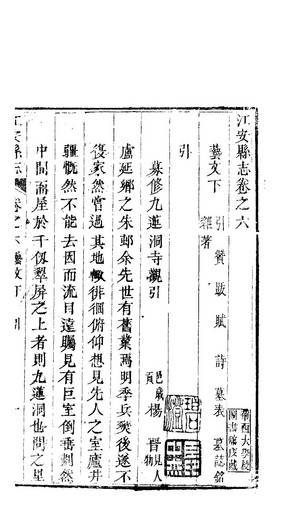 江安縣志卷之六
藝文下 引 贊 跋 賦 詩 墓表 墓誌銘
雜著
引
募修九蓮洞寺觀引
邑歲貢 楊晋 見人物
盧延鄉之朱邨余先世有舊業焉明季兵燹後遂不
復家然嘗過其地輒徘徊俯仰想見先人之室廬井
疆慨然不能去因而流目遠矚見有巨室倒垂劃然
中開涌屋於千仭翠屏之上者則九蓮洞也問之里
江安縣志 卷之六藝文下 引
華西大學校
圖書館庋藏